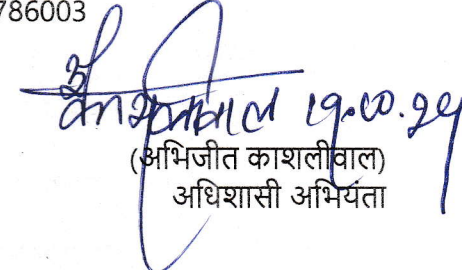 786003
(अभिजीत काशलीवाल)
अधिशासी अभियंता